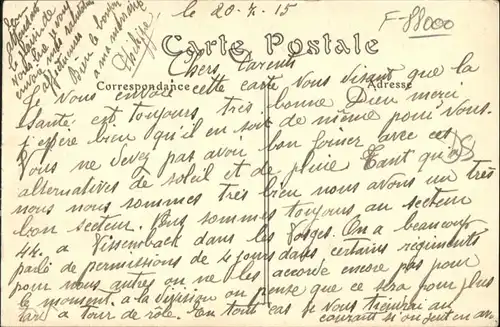 le 20-4-15
F-88000
Carte Postale
Correspondance
Adresse
En attendant
le plaisir de
vous lire je vous
envoie mes salutations
affectueuses
Bien le bonjour
a ma marraine
Philippe.
Chers Parents
Je vous envoie cette carte vous disant que la
santé est toujours très bonne Dieu merci
j'espère bien qu'il en soit de même pour vous.
Vous ne devez pas avoir bon soigner avec ces
alternatives de soleil et de pluie Tant qu'a
nous nous sommes très bien nous avons un très
bon secteur. Nous sommes toujours au secteur
44. a Vissembach dans les Vosges. On a beaucoup
parlé de permissions de 4 jours dans certains régiments
pour nous autres on ne les accorde encore pas pour
le moment. a la division on pense que ce sera pour plus
tard a tour de rôle. En tout cas je vous tiendrai au
courant si on vient en